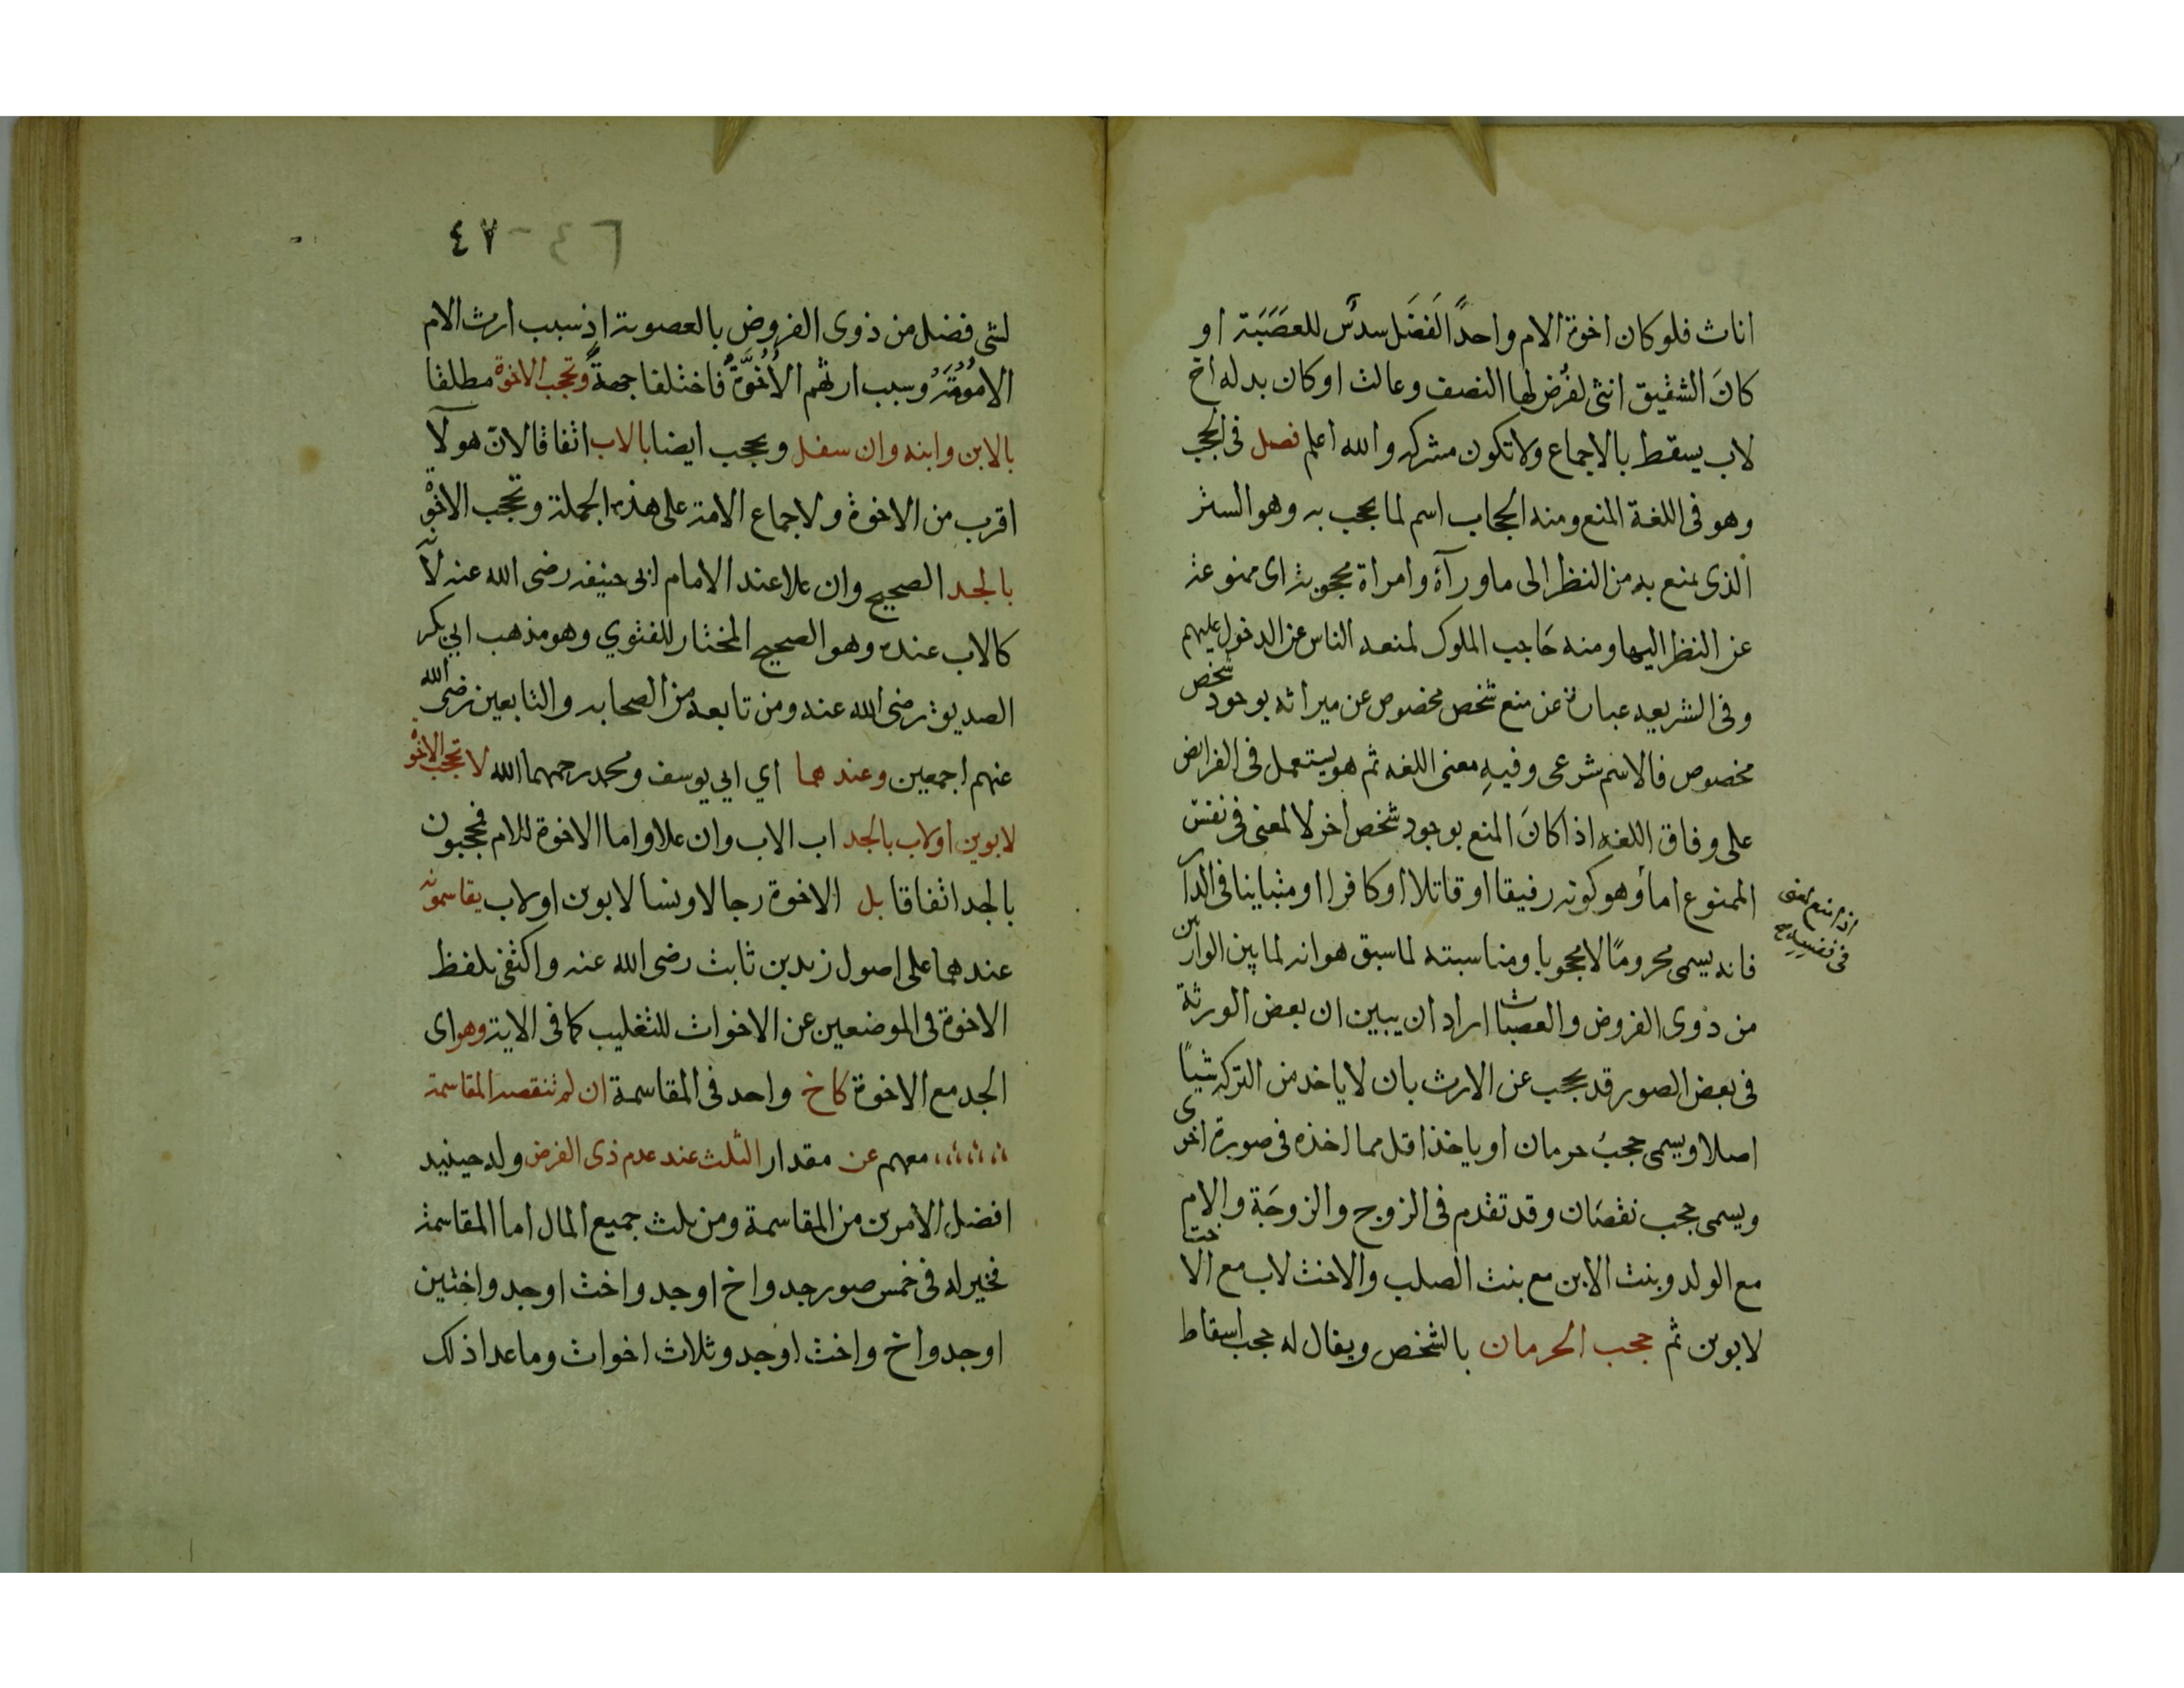 اناث فلو كان اخوة الام واحدًا لَفَضَل سدسٌ للعَصَبَة او
كانَ الشقيق انثى لفُرض لها النصف وعالت او كان بدله اخ
لاب يسقط بالاجماع ولا تكون مشركه والله اعلم فصل فى الحجب
وهو فى اللغة المنع ومنه الحجاب اسم لما يحجب به وهو الستر
الذى يمنع به من النظر الى ماورآه وامراة محجوبة اى ممنوعة
عن النظر اليها ومنه حَاجب الملوك لمنعه الناس عن الدخول عليهم
وفى الشريعه عبارة عن منع شخص مخصوص عن ميراثه بوجود شخص
مخصوص فالاسم شرعى وفيهِ معنى اللغه ثم هو يستعمل فى الفرايض
على وفاق اللغه اذا كانَ المنع بوجود شخص اخر لا لمعنى فى نفس
الممنوع اما وهو كونه رقيقا او قاتلا او كافرا او متباينا فى الدارين
اذا منع لمعنى
فى نفسه
فانه يسمى محرومًا لا محجوبا ومناسبته لما سبق هوانه لما بين الوارث
من ذوى الفروض والعصبات اراد ان يبين ان بعض الورثة
فى بعض الصور قد يحجب عن الارث بان لا ياخذ من التركه شيًا
اصلا ويسمى حجبُ حرمان او ياخذ اقل مما اخذه فى صورة اخرى
ويسمى حجب نقصَان وقد تقدم فى الزوج والزوجَة والام
مع الولد وبنت الابن مع بنت الصلب والاخت لاب مع الاخت
لابوين ثم حجب الحرمان بالشخص ويقال له حجب اسقاط
٤٦ - ٤٧
لشى فضل من ذوى الفروض بالعصوبة اذ سبب ارث الام
الامُوُمَةُ وسبب ارثهم الاُخُوَّةُ فاختلفا جهةً وتحجب الاخوة مطلقا
بالابن وابنه وان سفل ويحجب ايضا بالاب اتفاقا لانّ هولآ
اقرب من الاخوة ولاجماع الامة على هذه الجملة وتحجب الاخوة
بالجد الصحيح وان علا عند الامام ابى حنيفه رضى الله عنه لانّه
كالاب عنده وهو الصحيح المختار للفتوي وهو مذهب ابي بكر
الصديق رضى الله عنه ومن تابعه من الصحابه والتابعين رضى الله
عنهم اجمعين وعندهما أي ابي يوسف ومحمد رحمهما الله لا تحجب الاخوة
لابوين اولاب بالجد اب الاب وان علا واما الاخوة للام فيحجبون
بالجد اتفاقا بل الاخوة رجالا ونسا لابوين اولاب يقاسمونه
عندهما على اصول زيد بن ثابت رضى الله عنه واكتفى بلفظ
الاخوة فى الموضعين عن الاخوات للتغليب كما فى الاية وهو اى
الجد مع الاخوة كاخ واحد فى المقاسمة ان لم تنقصه المقاسمة
معهم عن مقدار الثلث عند عدم ذى الفرض وله حينيد
افضل الامرين من المقاسمة ومن ثلث جميع المال اما المقاسمة
فخير له فى خمس صور جد واخ او جد واخت او جد واختين
او جد واخ واخت او جد وثلاث اخوات وما عدا ذلك